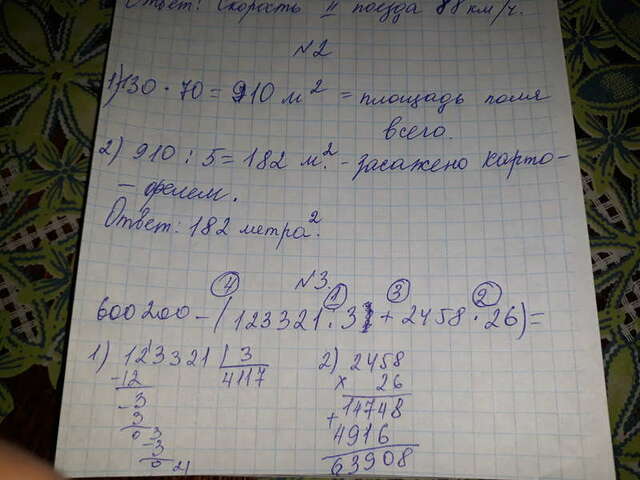 Ответ: Скорость II поезда 88 км/ч.
№2
1) 130 · 70 = 910 м² = площадь поля
всего.
2) 910 : 5 = 182 м². - засажено карто-
- фелем.
Ответ: 182 метра².
№3.
4 1 3 2
600200 - (123321 : 3 + 2458 · 26) =
1) 123321 | 3 2) 2458
-12 4117 x 26
-3 14748
3 + 4916
0 3 63908
-3
0 21